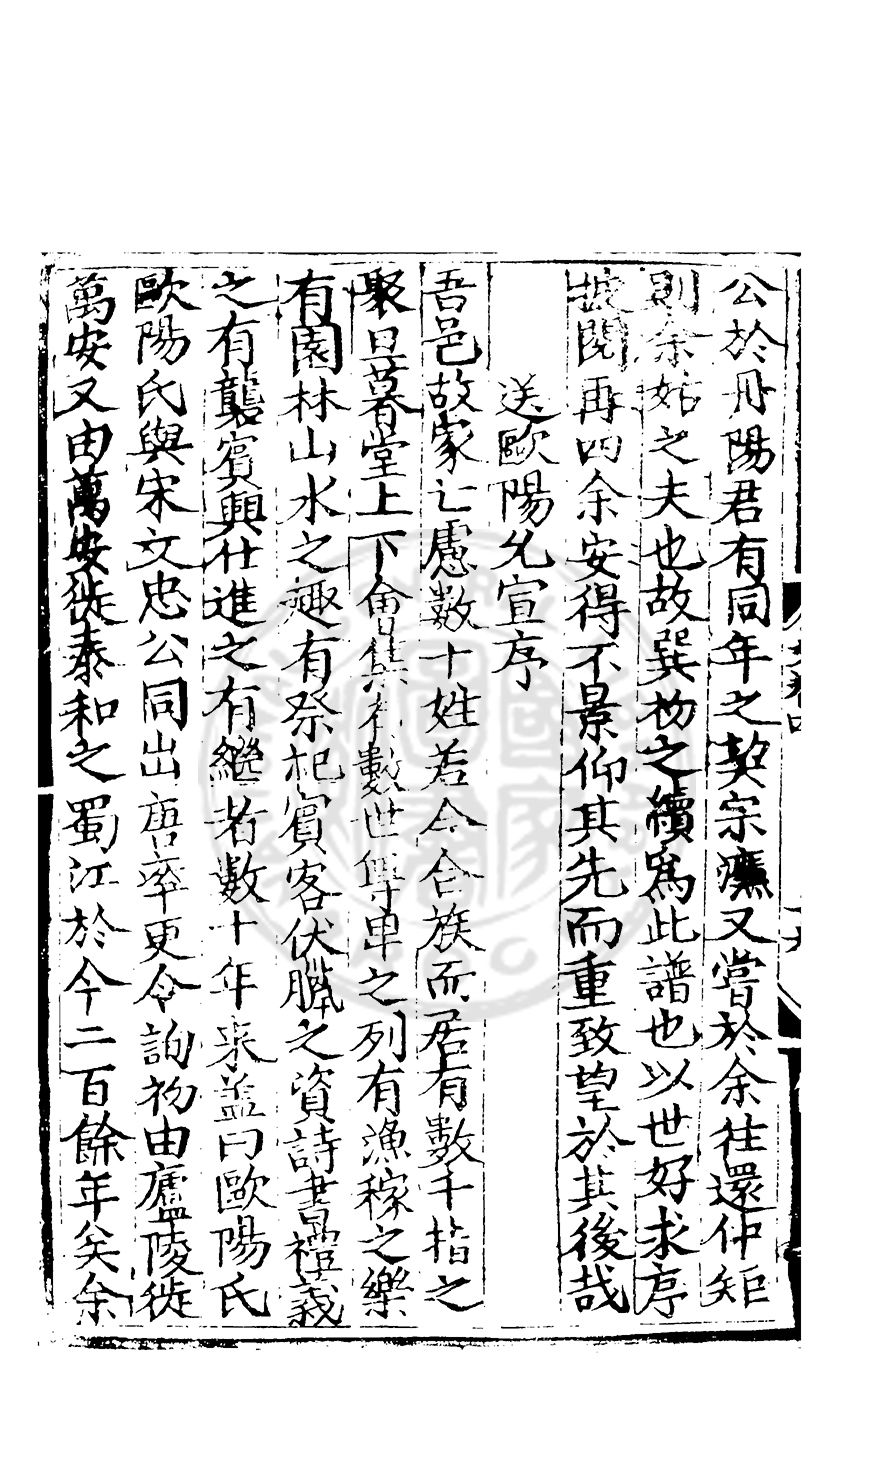 公於丹陽君有同年之契宗濂又嘗於余往還仲矩
則余姑之夫也故巽初之續為此譜也以世好求序
披閱再四余安得不景仰其先而重致望於其後哉
送歐陽允宣序
吾邑故家亡慮數十姓若今合族而居有數千指之
聚旦暮堂上下會集有數世尊卑之列有漁稼之樂
有園林山水之趣有祭杞賓客伏臘之資詩書禮義
之有襲賓興仕進之有継者數十年来盖曰歐陽氏
歐陽氏與宋文忠公同出唐率更令詢初由廬陵徙
萬安又由萬安徙泰和之蜀江於今二百餘年矣余